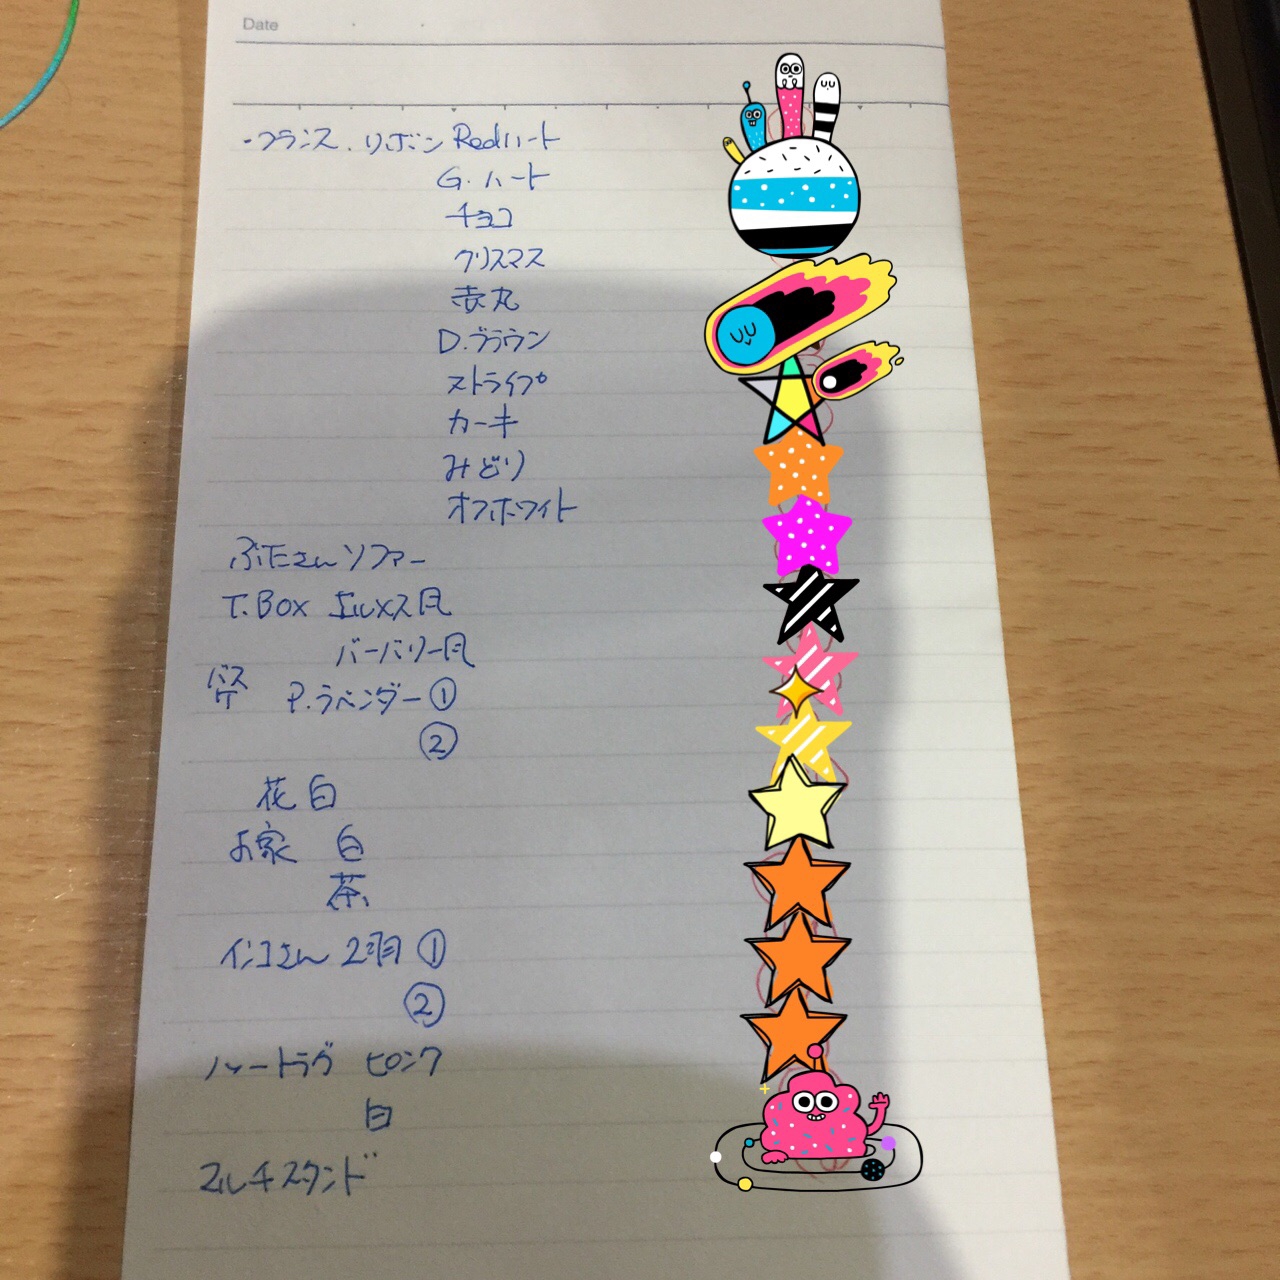 Date
・フランス.リボン Redハート
G.ハート
チョコ
クリスマス
赤丸
D.ブラウン
ストライプ
カーキ
みどり
オフホワイト
ぶたさんソファー
T.Box エルメス風
バーバリー風
バスケ P.ラベンダー①
②
花 白
お家 白
茶
インコさん 2羽 ①
②
ハートラグ ピンク
白
マルチスタンド